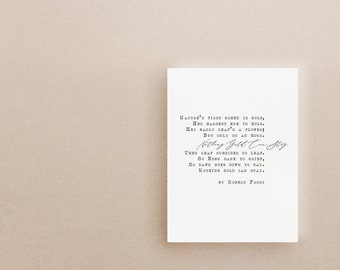 Nature's first green is gold,
Her hardest hue to hold.
Her early leaf's a flower;
But only so an hour.
Nothing Gold Can Stay
Then leaf subsides to leaf.
So Eden sank to grief,
So dawn goes down to day.
Nothing gold can stay.
by Robert Frost